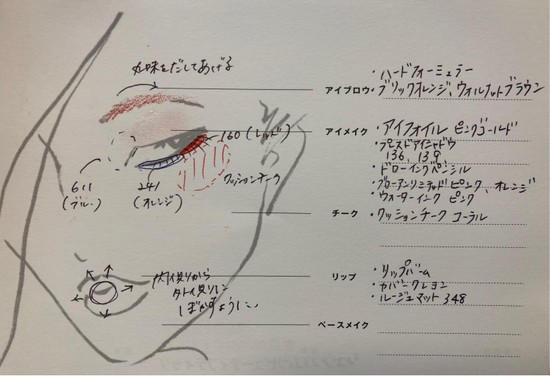 丸味をだしてあげる
・ハードフォーミュラー
アイブロウ
・ブリックオレンジ、ウォルナットブラウン
アイメイク
・アイフォイル ピンクゴールド
160(レッド)
・プレスドアイシャドウ
136、139
・ドローイングペンシル
611
(ブルー)
241
(オレンジ)
クッションチーク
ピンク、オレンジ
・ウォーターインク ピンク
チーク
・クッションチーク コーラル
内側から
外側に
ぼかすように。
リップ
・リップバーム
・カバークレヨン
・ルージュマット 348
ベースメイク